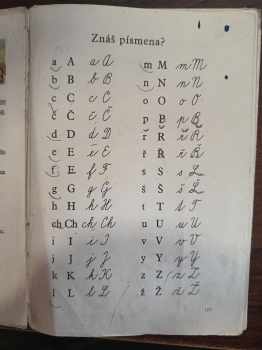 Znáš písmena?
a A a A
b B b B
c C c C
č Č č Č
d D d D
e E e E
f F f F
g G g G
h H h H
ch Ch ch Ch
i I i I
j J j J
k K k K
l L l L
m M m M
n N n N
o O o O
p P p P
r R r R
ř Ř ř Ř
s S s S
š Š š Š
t T t T
u U u U
v V v V
y Y y Y
z Z z Z
ž Ž ž Ž